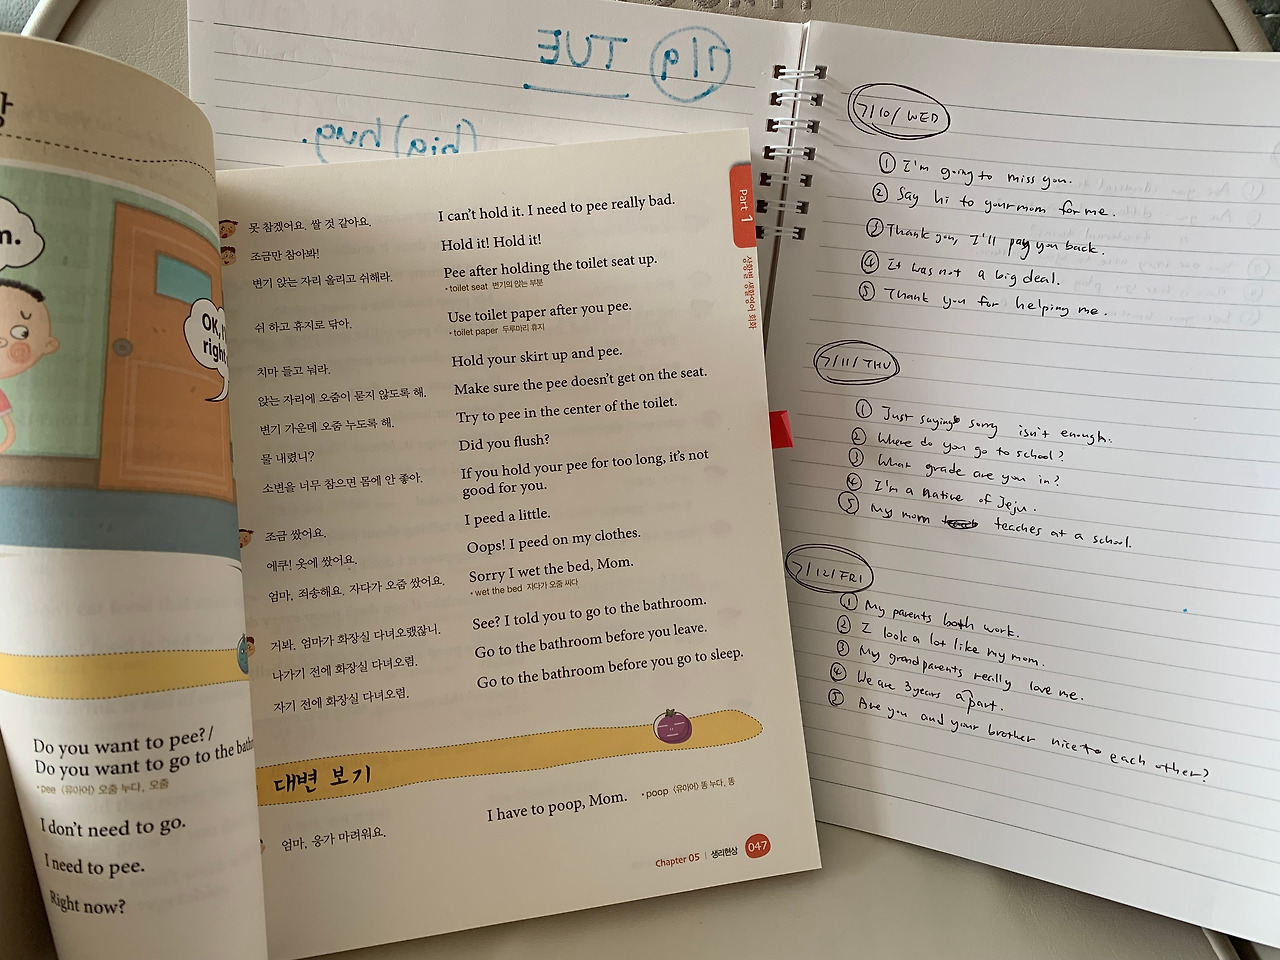 m.
OK, I
right
Do you want to pee?/
Do you want to go to the bath
• pee 〈유아어〉 오줌 누다, 오줌
I don't need to go.
I need to pee.
Right now?
못 참겠어요. 쌀 것 같아요. I can't hold it. I need to pee really bad.
조금만 참아봐! Hold it! Hold it!
변기 앉는 자리 올리고 쉬해라. Pee after holding the toilet seat up.
• toilet seat 변기의 앉는 부분
쉬 하고 휴지로 닦아. Use toilet paper after you pee.
• toilet paper 두루마리 휴지
치마 들고 눠라. Hold your skirt up and pee.
앉는 자리에 오줌이 묻지 않도록 해. Make sure the pee doesn't get on the seat.
변기 가운데 오줌 누도록 해. Try to pee in the center of the toilet.
물 내렸니? Did you flush?
소변을 너무 참으면 몸에 안 좋아. If you hold your pee for too long, it's not
good for you.
조금 쌌어요. I peed a little.
에쿠! 옷에 쌌어요. Oops! I peed on my clothes.
엄마, 죄송해요. 자다가 오줌 쌌어요. Sorry I wet the bed, Mom.
• wet the bed 자다가 오줌 싸다
거봐, 엄마가 화장실 다녀오랬잖니. See? I told you to go to the bathroom.
나가기 전에 화장실 다녀오렴. Go to the bathroom before you leave.
자기 전에 화장실 다녀오렴. Go to the bathroom before you go to sleep.
대변 보기
엄마, 응가 마려워요. I have to poop, Mom. • poop 〈유아어〉 똥 누다, 똥
Chapter 05 | 생리현상 047
Part 1
생활편 생활영어 회화
7/9 TUE
(big) hug.
7/10/ WED
① I'm going to miss you.
② Say hi to your mom for me.
③ Thank you, I'll pay you back.
④ It was not a big deal.
⑤ Thank you for helping me.
7/11/ THU
① Just saying sorry isn't enough.
② Where do you go to school?
③ What grade are you in?
④ I'm a native of Jeju.
⑤ My mom teaches at a school.
7/12/ FRI
① My parents both work.
② I look a lot like my mom.
③ My grandparents really love me.
④ We are 3 years apart.
⑤ Are you and your brother nice to each other?